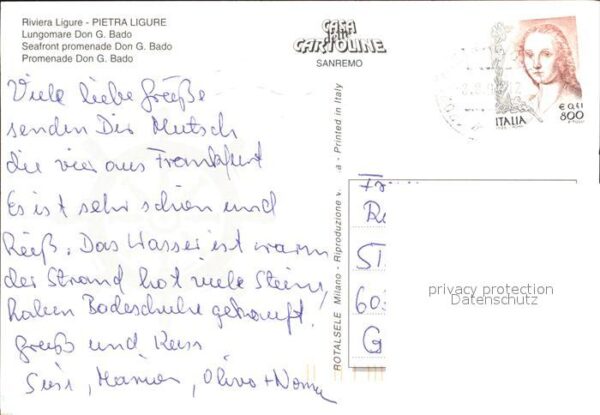 Riviera Ligure - PIETRA LIGURE
Lungomare Don G. Bado
Seafront promenade Don G. Bado
Promenade Don G. Bado
CASA
delle
CARTOLINE
SANREMO
€ 0,41
800
ITALIA
Viele liebe Grüße
senden Dir Mutsch
die vier aus Frankfurt
Es ist sehr schön und
heiß. Das Wasser ist warm
der Strand hat viele Steine,
haben Badeschuhe gekauft!
Gruß und Kuss
Susi, Marius, Olivo + Nome
ROTALSELE Milano - Riproduzione v a - Printed in Italy
Fr
Re
ST
603
G
privacy protection
Datenschutz